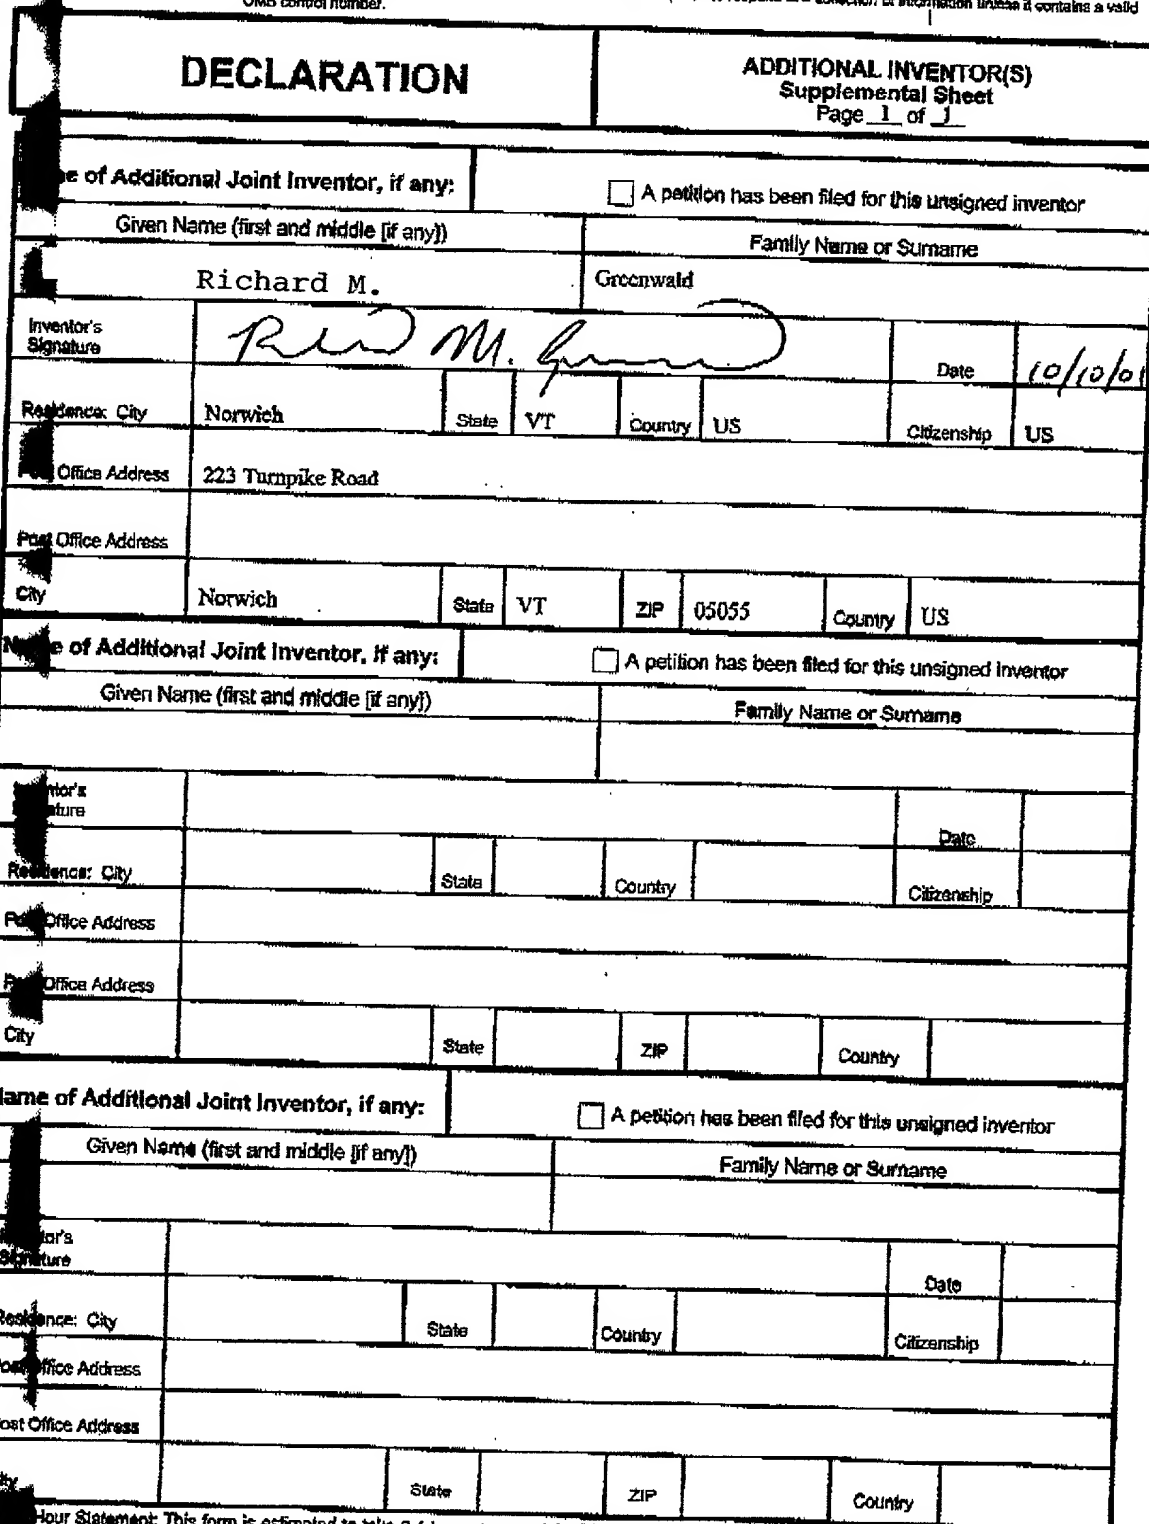 OMB control number.
information unless it contains a valid
DECLARATION
ADDITIONAL INVENTOR(S)
Supplemental Sheet
Page 1 of 1
e of Additional Joint Inventor, if any:
A petition has been filed for this unsigned inventor
Given Name (first and middle [if any])
Family Name or Surname
Richard M.
Greenwald
Inventor's
Signature
Date
10/10/01
Residence: City
Norwich
State
VT
Country
US
Citizenship
US
Post Office Address
223 Turnpike Road
Post Office Address
City
Norwich
State
VT
ZIP
05055
Country
US
Name of Additional Joint Inventor, if any:
A petition has been filed for this unsigned inventor
Given Name (first and middle [if any])
Family Name or Surname
Inventor's
Signature
Date
Residence: City
State
Country
Citizenship
Post Office Address
Post Office Address
City
State
ZIP
Country
Name of Additional Joint Inventor, if any:
A petition has been filed for this unsigned inventor
Given Name (first and middle [if any])
Family Name or Surname
Inventor's
Signature
Date
Residence: City
State
Country
Citizenship
Post Office Address
Post Office Address
City
State
ZIP
Country
Hour Statement: This form is estimated to take